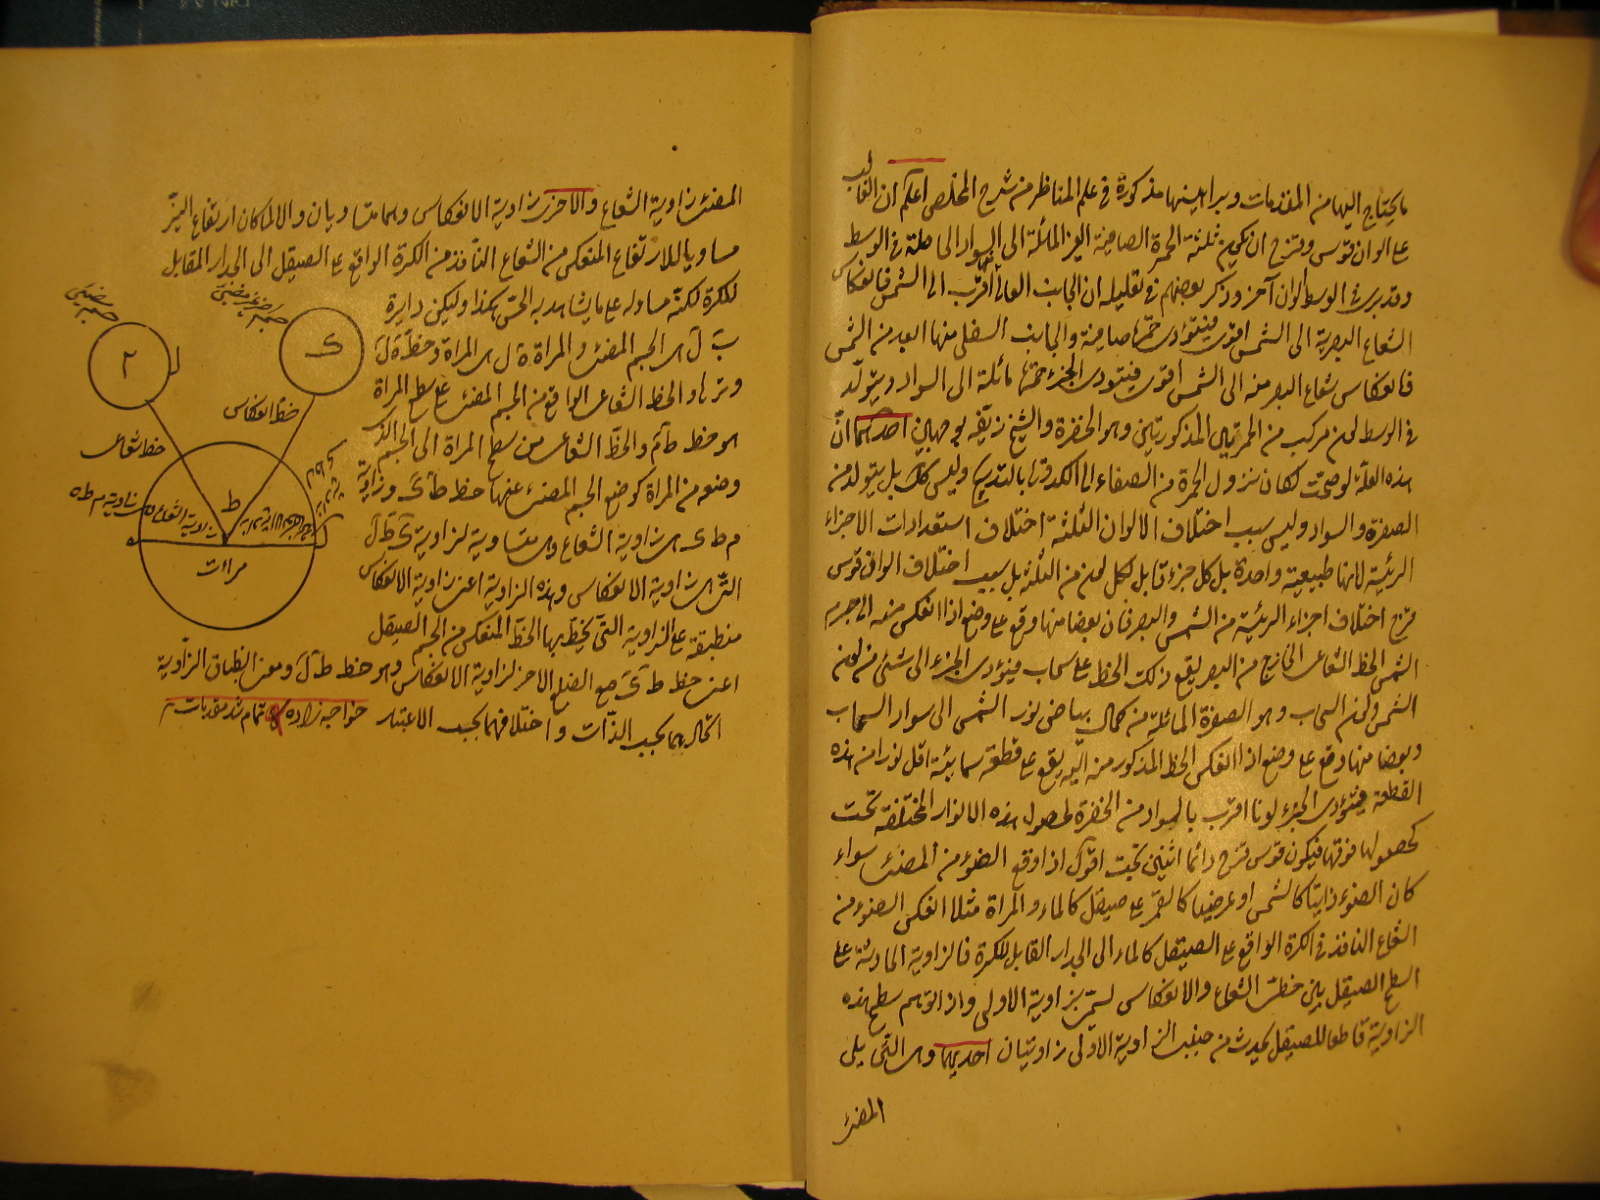 ما يحتاج اليها من المقدمات وبراهينها مذكورة في علم المناظر من شرح الملخص اعلم ان الغالب
على الوان قوس وقزح ان يكون ثلثة الحمرة الصافية الغير المائلة الى السواد الحاصلة في الوسط
وقد يرى في الوسط الوان آخر وذكر بعضهم في تعليله ان الجانب العالى اقرب الى الشمس فانعكاس
الشعاع البصرية الى الشمس اقوى فيتؤدى حمرة صافية والجانب السفلى منها ابعد من الشمس
فانعكاس شعاع البصر منه الى الشمس اقوى فيتودى الجزء حمرة مائلة الى السواد ويتولد
في الوسط لون مركب من الحمرتين المذكورتين وهو الخضرة والشيخ زيفه بوجهين احدهما ان
هذه العلة لو صحت لكان نزول الحمرة من الصفاء الى الكدورة بالتدريج وليس كك بل يتولد من
الصفرة والسواد وليس سبب اختلاف الالوان الثلثة اختلاف استعدادات الاجزاء
الرشية لانها طبيعية واحدة بل كل جزء قابل لكل لون من الثلثة بل سبب اختلاف الوان قوس
قزح اختلاف اجزاء الرشية من الشمس والبصر فان بعضا منها وقع على وضع اذا انعكس منه الى جرم
الشمس الخط الشعاعى الخارج من البصر يقع ذلك الخط على سحاب فيؤدى الجزء الى شئ من لون
الشمس ولون السحاب وهو الصفرة المائلة من كمال بياض نور الشمس الى سواد السحاب
وبعضا منها وقع على وضع اذا انعكس الخط المذكور منه اليه يقع على قطعة سمائية اقل نورا من هذه
القطعة فيتؤدى الجزء لونا اقرب بالسواد من الخضرة لحصول هذه الانوار المختلفة تحت
كحصولها فوقها فيكون قوس قزح دائما اثنين تحت اقول اذا وقع الضوء من المضئ سواء
كان الضوء ذاتيا كالشمس او عرضيا كالقمر على صيقل كالماء والمرآة مثلا انعكس الضوء من
الشعاع النافذ في الكرة الواقع على الصيقل كالماء الى الجدار المقابل للكرة فالزاوية الحادثة على
السطح الصيقل بين خطى الشعاع والانعكاس تسمى بزاوية الاولى واذا توهم سطح هذه
الزاوية قاطعا للصيقل يحدث من جنبى الزاوية الاولى زاويتان احديهما وهى التى يلى
المضئ
المضئ زاوية الشعاع والاخرى زاوية الانعكاس وهما متساويان والا لما كان ارتفاع النير
مساويا للارتفاع المنعكس من الشعاع النافذ من الكرة الواقع على الصيقل الى الجدار المقابل
للكرة لكنه مساو له على ما يشاهد به الحس هكذا وليكن دايرة
ب ل هى الجسم المضئ والمرآة ة ل هى المرآة وخط ة ل
وترها والخط الشعاعى الواقع من الجسم المضئ على سطح المرآة
هو خط ط م والخط الشعاعى من سطح المرآة الى الجسم الذى
وضعه من المرآة كوضع الجسم المضئ عنها خط ط ى وزاوية
م ط ى هى زاوية الشعاع وهى متساوية لزاوية ى ط ل
التى هى زاوية الانعكاس وهذه الزاوية اعنى زاوية الانعكاس
منطبقة على الزاوية التى يحيط بها الخط المنعكس من الجسم الصيقل
اعنى خط ط ى مع الضلع الاخر لزاوية الانعكاس وهو خط ط ل ومعنى انطباق الزاوية
اتحادهما بحسب الذات واختلافهما بحسب الاعتبار خواجه زاده تمام شد
جسم مضئ
م
ى
خط انعكاس
خط شعاعى
ط
زاوية الشعاع
زاوية م ط ه
مرآت